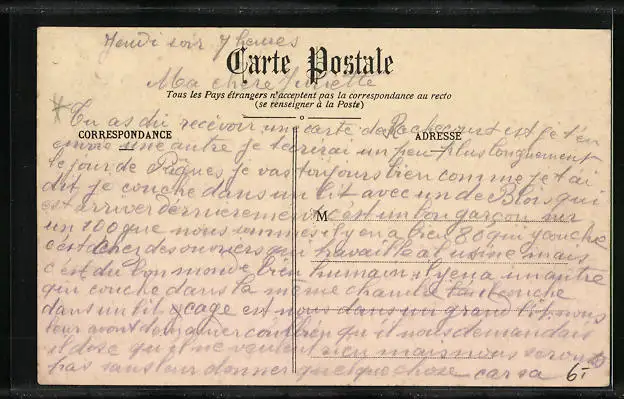 Jeudi soir 7 heures
Carte Postale
Ma chere Juliette
Tous les Pays étrangers n'acceptent pas la correspondance au recto
(se renseigner à la Poste)
Tu as du recevoir une carte de et je t'en
CORRESPONDANCE
ADRESSE
envoie une autre je t'ecrirai un peu plus longuement
le jour de Pâques je vas toujours bien comme je t'ai
dit je couche dans un lit avec un de Blois qui
est arriver dernierement c'est un bon garçon sur
M
un 100 que nous sommes il y en a bien 80 qui y couche
c'est des ouvriers qui travaille a l'usine mais
c'est du bon monde bien humain il y en a un autre
qui couche dans la même chambre
dans un lit cage est nous dans un grand lit nous
leur avont demander combien qu'il nous demandais
il dise qu'il ne veulent rien mais nous seront
pas sans leur donner quelque chose car sa
6.-